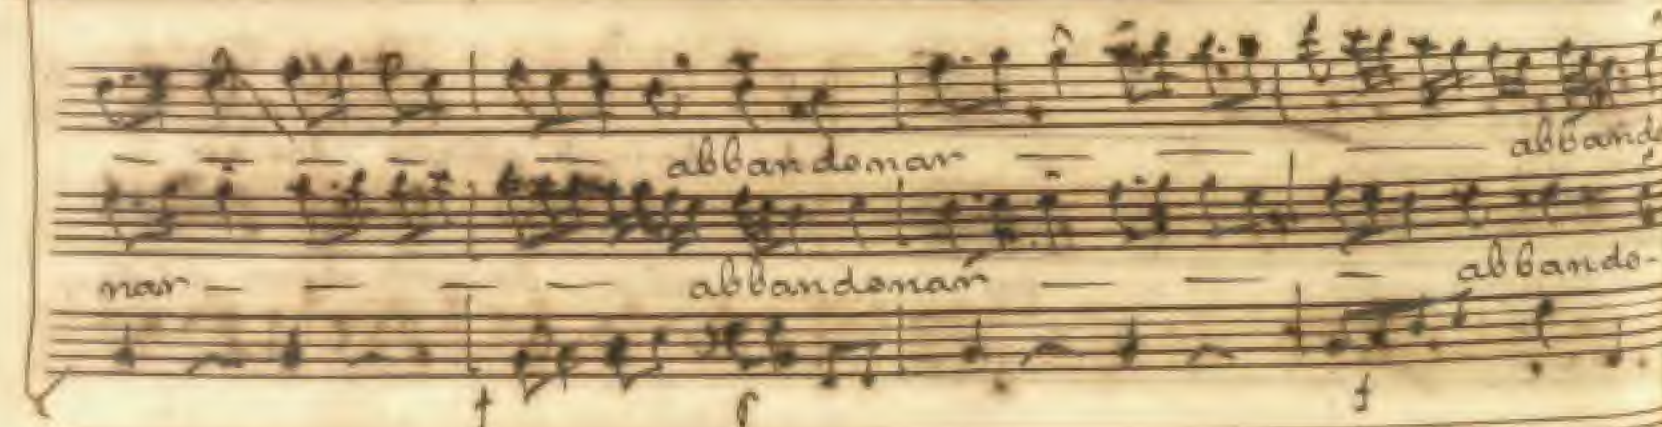 abbandonar abband
nar abbandonar abbando-
f p f